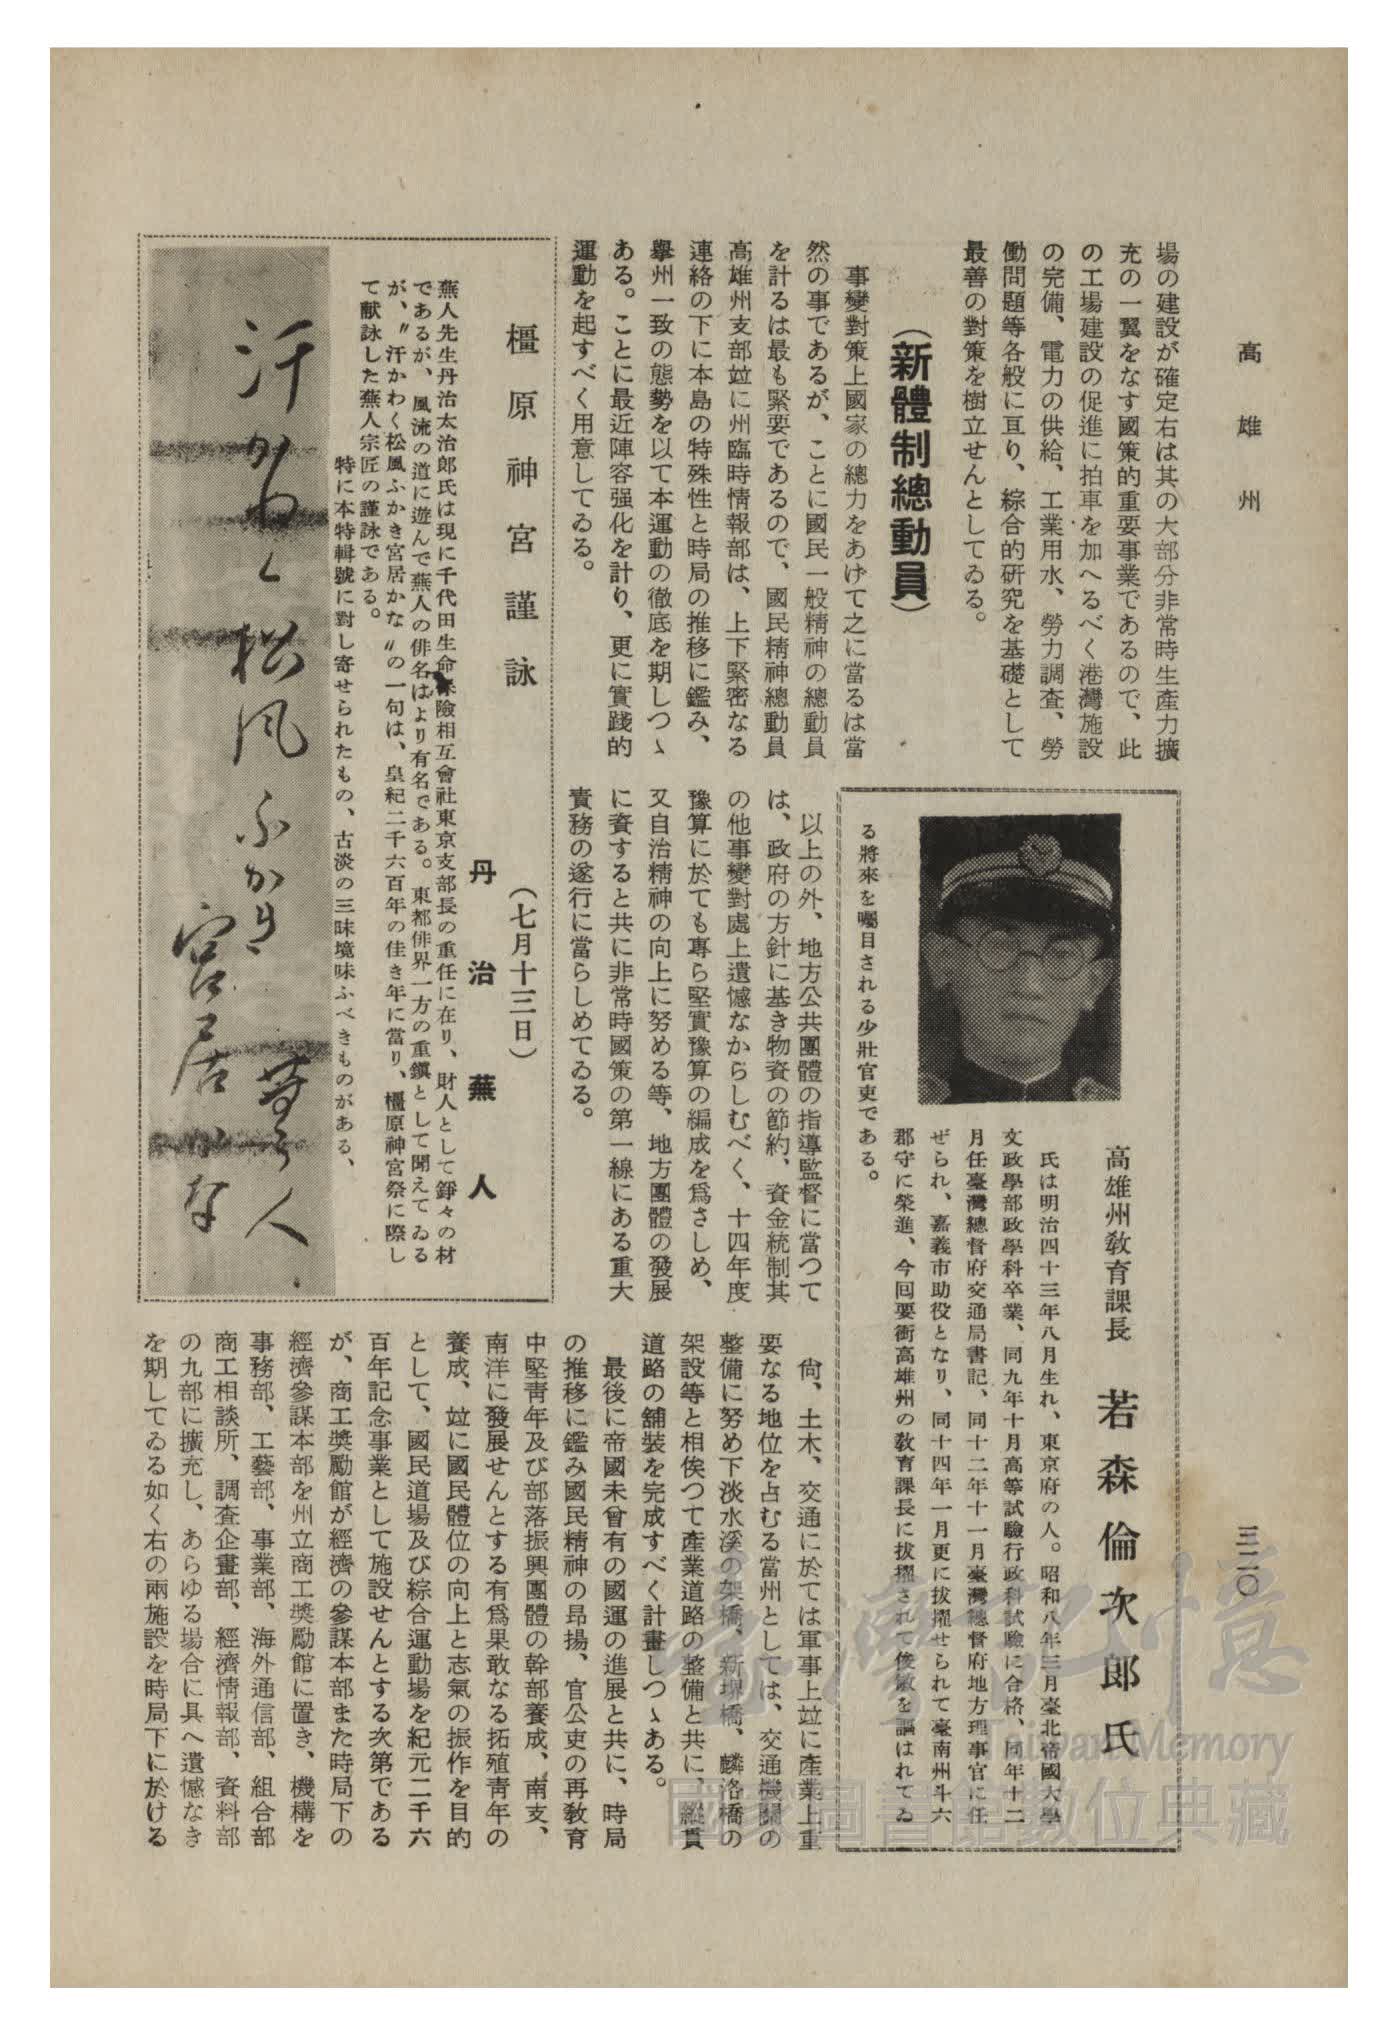 高雄州
三二〇
場の建設が確定右は其の大部分非常時生産力擴
充の一翼をなす國策的重要事業であるので、此
の工場建設の促進に拍車を加へるべく港灣施設
の完備、電力の供給、工業用水、勞力調査、勞
働問題等各般に亙り、綜合的研究を基礎として
最善の對策を樹立せんとしてゐる。
(新體制總動員)
事變對策上國家の總力をあげて之に當るは當
然の事であるが、ことに國民一般精神の總動員
を計るは最も緊要であるので、國民精神總動員
高雄州支部竝に州臨時情報部は、上下緊密なる
連絡の下に本島の特殊性と時局の推移に鑑み、
擧州一致の態勢を以て本運動の徹底を期しつゝ
ある。ことに最近陣容强化を計り、更に實踐的
運動を起すべく用意してゐる。
高雄州教育課長 若森倫次郎氏
氏は明治四十三年八月生れ、東京府の人。昭和八年三月臺北帝國大學
文政學部政學科卒業、同九年十月高等試驗行政科試驗に合格、同年十二
月任臺灣總督府交通局書記、同十二年十一月臺灣總督府地方理事官に任
ぜられ、嘉義市助役となり、同十四年一月更に拔擢せられて臺南州斗六
郡守に榮進、今回要衝高雄州の教育課長に拔擢されて俊敏を謳はれてゐ
る將來を囑目される少壯官吏である。
以上の外、地方公共團體の指導監督に當つて
は、政府の方針に基き物資の節約、資金統制其
の他事變對處上遺憾なからしむべく、十四年度
豫算に於ても專ら堅實豫算の編成を爲さしめ、
又自治精神の向上に努める等、地方團體の發展
に資すると共に非常時國策の第一線にある重大
責務の遂行に當らしめてゐる。
尙、土木、交通に於ては軍事上竝に產業上重
要なる地位を占むる當州としては、交通機關の
整備に努め下淡水溪の架橋、新堀橋、麟洛橋の
架設等と相俟つて產業道路の整備と共に、縱貫
道路の舖裝を完成すべく計畫しつゝある。
最後に帝國未曾有の國運の進展と共に、時局
の推移に鑑み國民精神の昂揚、官公吏の再敎育
中堅靑年及び部落振興團體の幹部養成、南支、
南洋に發展せんとする有爲果敢なる拓殖靑年の
養成、竝に國民體位の向上と志氣の振作を目的
として、國民道場及び綜合運動場を紀元二千六
百年記念事業として施設せんとする次第である
が、商工獎勵館が經濟の參謀本部また時局下の
經濟參謀本部を州立商工獎勵館に置き、機構を
事務部、工藝部、事業部、海外通信部、組合部
商工相談所、調査企畫部、經濟情報部、資料部
の九部に擴充し、あらゆる場合に具へ遺憾なき
を期してゐる如く右の兩施設を時局下に於ける
橿原神宮謹詠
(七月十三日)
丹治蕪人
蕪人先生丹治太治郎氏は現に千代田生命保險相互會社東京支部長の重任に在り、財人として錚々の材
であるが、風流の道に遊んで蕪人の俳名はより有名である。東都俳界一方の重鎭として聞えてゐる
が、〝汗かわく松風ふかき宮居かな〟の一句は、皇紀二千六百年の佳き年に當り、橿原神宮祭に際し
て献詠した蕪人宗匠の謹詠である。
特に本特輯號に對し寄せられたもの、古淡の三昧境味ふべきものがある、
汗かわく松風ふかき
宮居かな
蕪人
臺灣記憶
Taiwan Memory
國家圖書館數位典藏